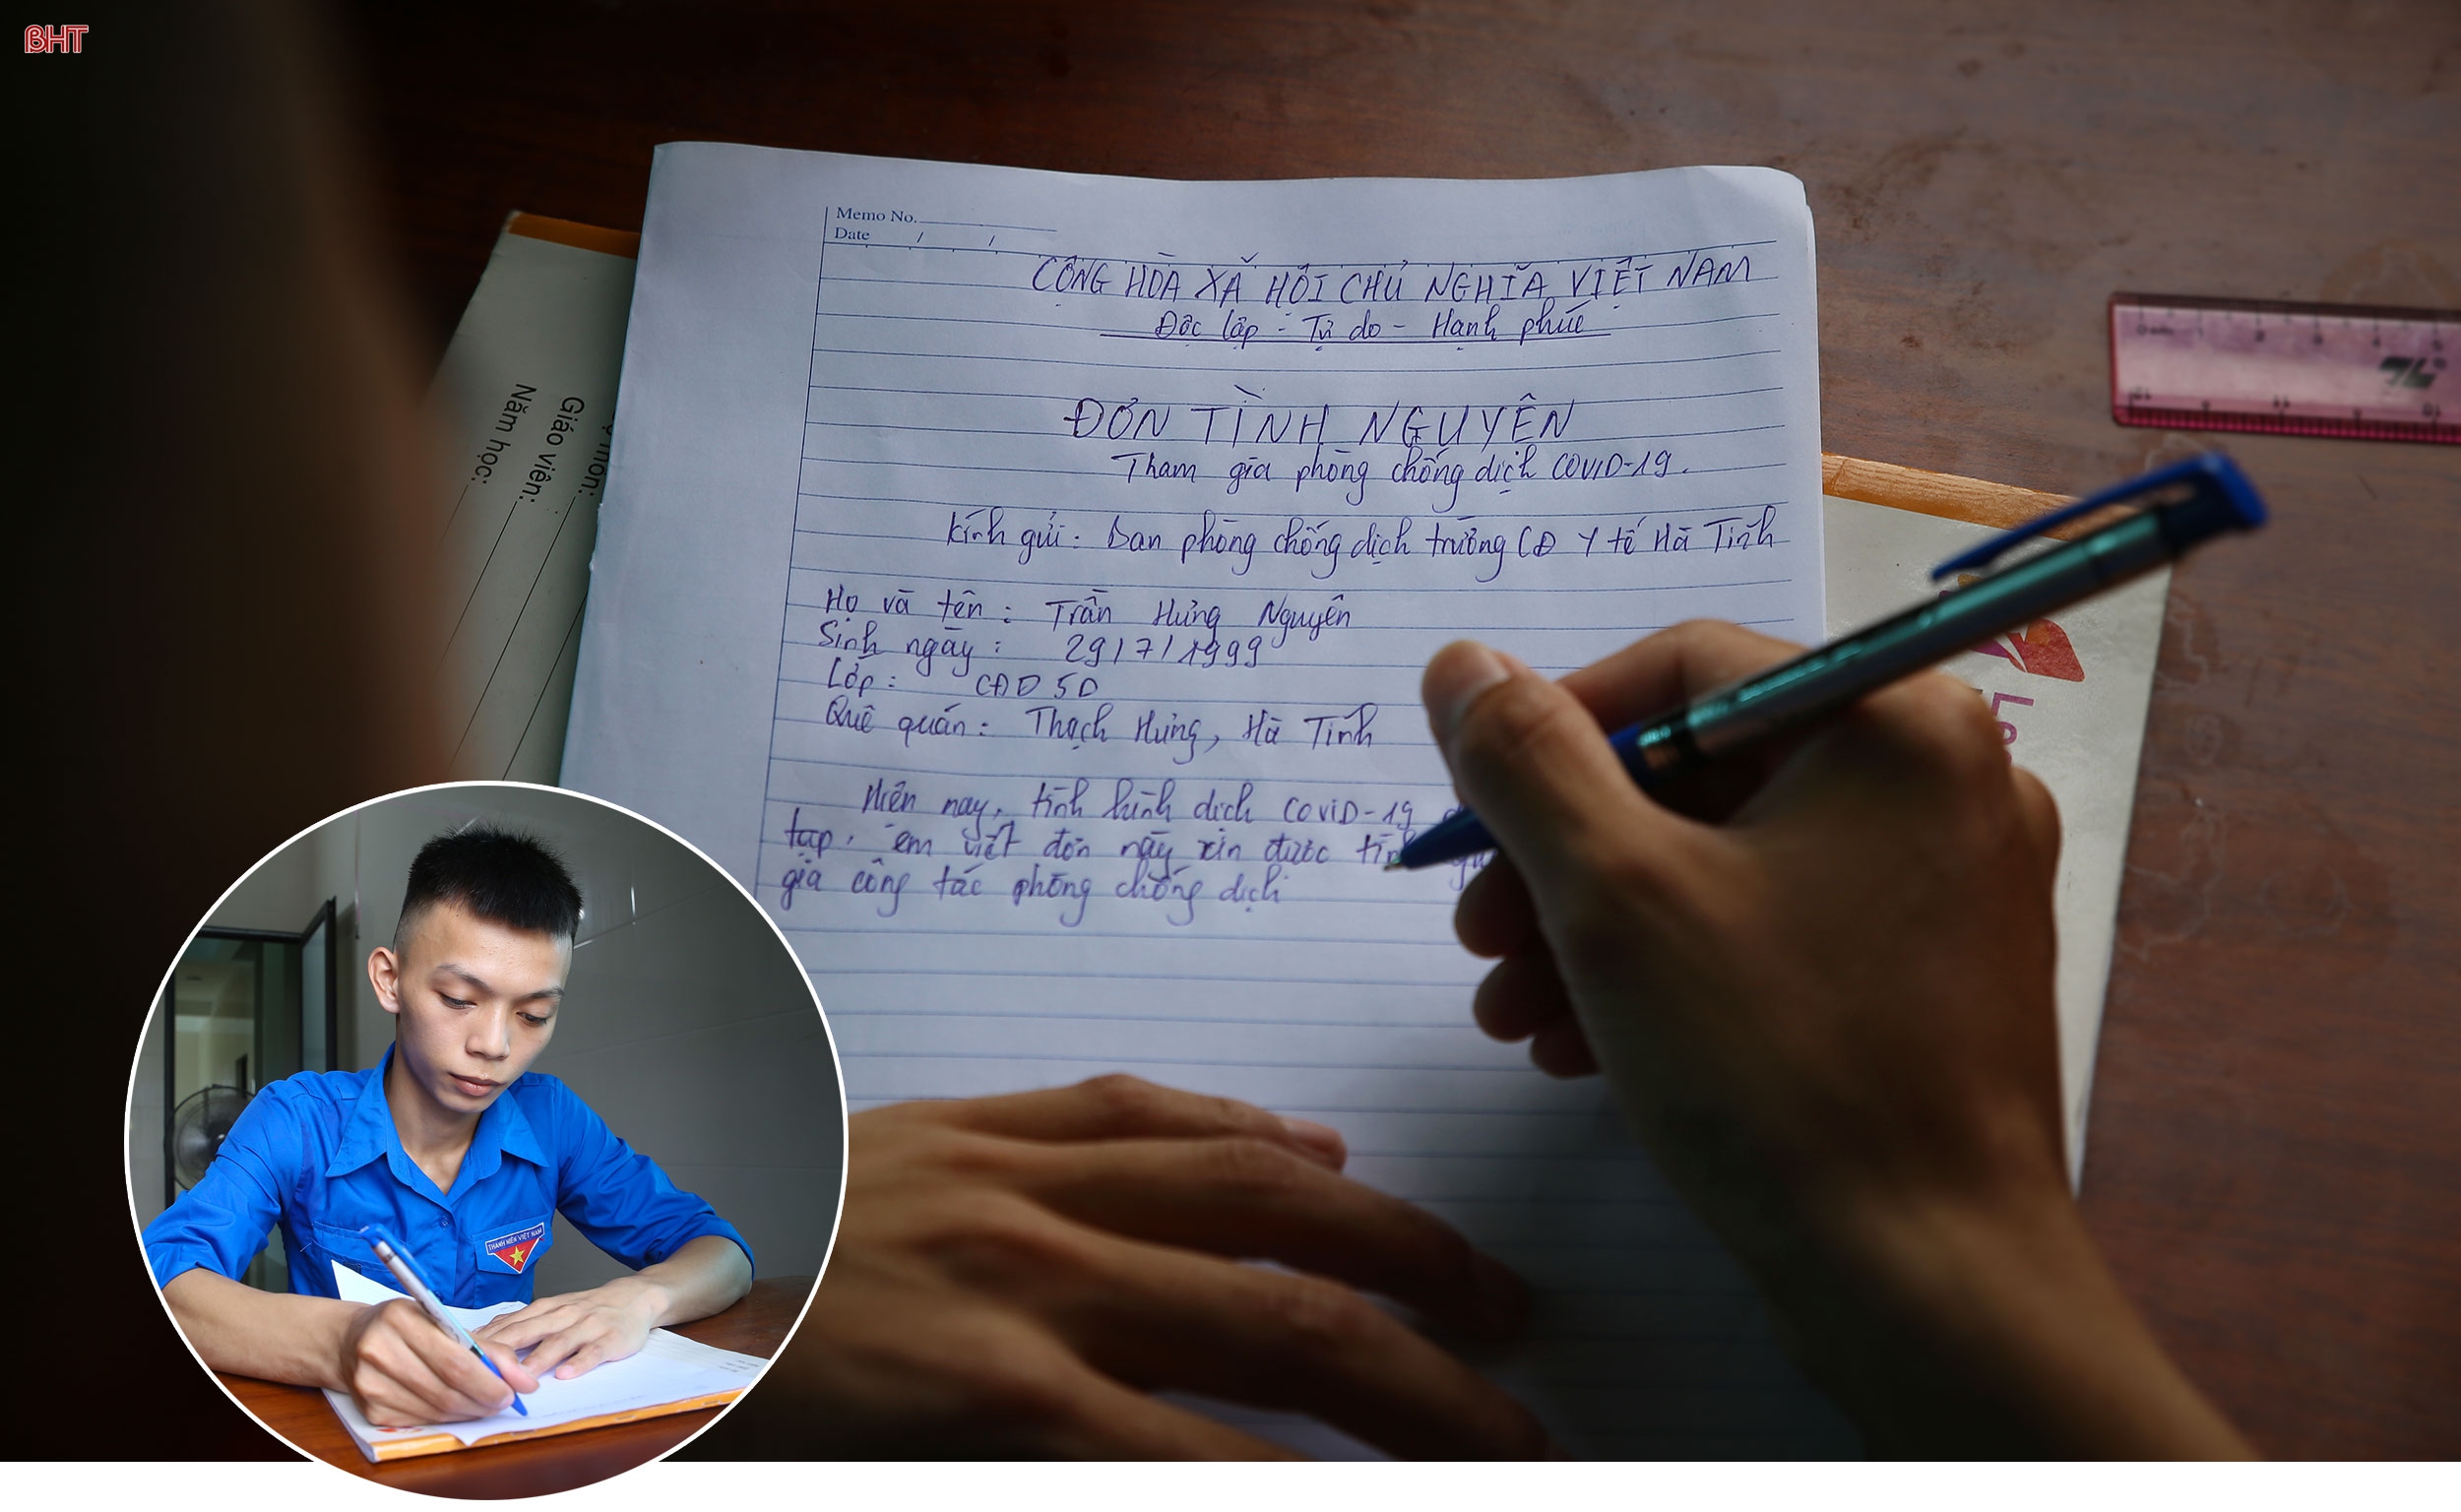 BHT
Memo No.
Date / /
CỘNG HÒA XÃ HỘI CHỦ NGHĨA VIỆT NAM
Độc lập - Tự do - Hạnh phúc
ĐƠN TÌNH NGUYỆN
Tham gia phòng chống dịch COVID-19.
Kính gửi: Ban phòng chống dịch trường CĐ Y tế Hà Tĩnh
Họ và tên: Trần Hưng Nguyên
Sinh ngày: 29/7/1999
Lớp: CĐD 5D
Quê quán: Thạch Hưng, Hà Tĩnh
Hiện nay, tình hình dịch COVID-19
tạp, em viết đơn này xin được
gia công tác phòng chống dịch
môn:
Giáo viên:
Năm học:
THANH NIÊN VIỆT NAM